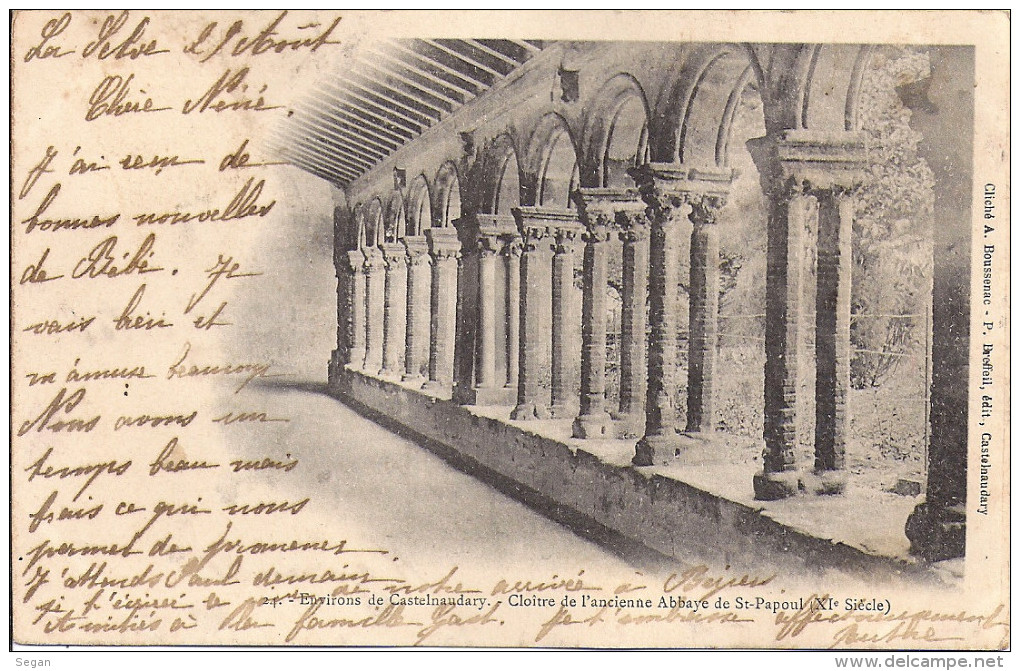 La Selve 29 Août
Chère Néné.
J'ai reçu de
bonnes nouvelles
de Bébé. Je
vais bien et
m'amuse beaucoup
Nous avons un
temps beau mais
frais ce qui nous
permet de promener
J'attends Paul demain
je t'écrirai le jour de notre arrivée à
Amitiés à la famille Gast. Je t'embrasse affectueusement
21. - Environs de Castelnaudary. - Cloître de l'ancienne Abbaye de St-Papoul (XIe Siècle)
Cliché A. Boussenac - P. Breffeil, édit., Castelnaudary
Segan
http://www.delcampe.net